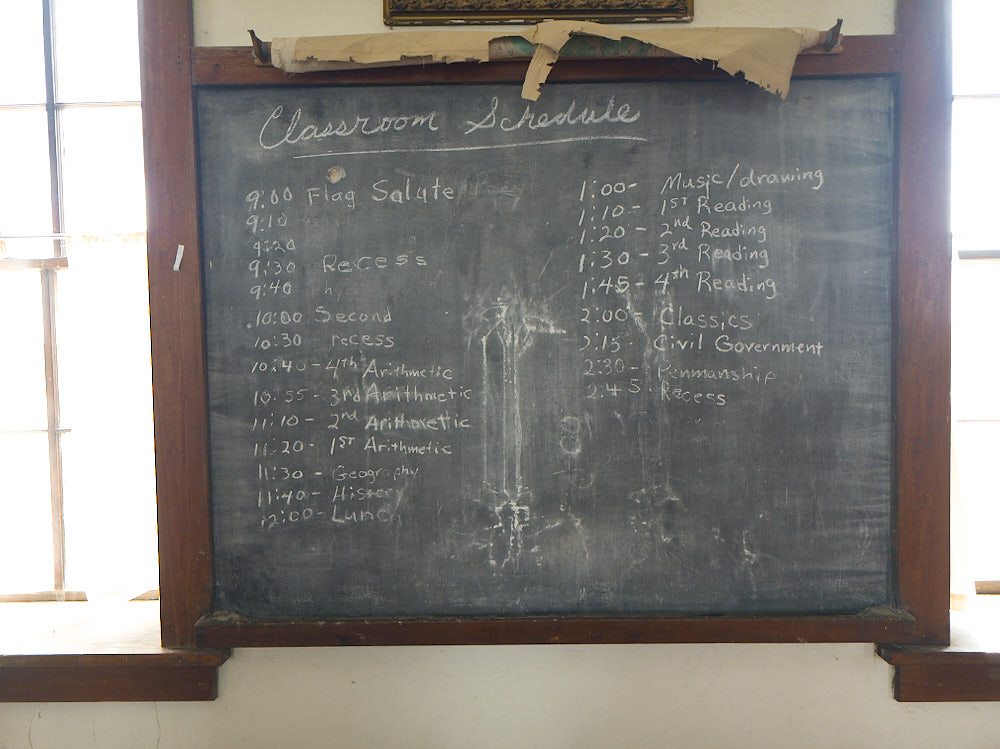 Classroom Schedule
9:00 Flag Salute
9:10
9:20
9:30 Recess
9:40
10:00 Second
10:30 recess
10:40-4th Arithmetic
10:55-3rd Arithmetic
11:10-2nd Arithmetic
11:20-1ST Arithmetic
11:30-Geography
11:40-History
12:00-Lunch
1:00- Music/drawing
1:10- 1ST Reading
1:20- 2nd Reading
1:30-3rd Reading
1:45-4th Reading
2:00- Classics
2:15- Civil Government
2:30- Penmanship
2:45- Recess